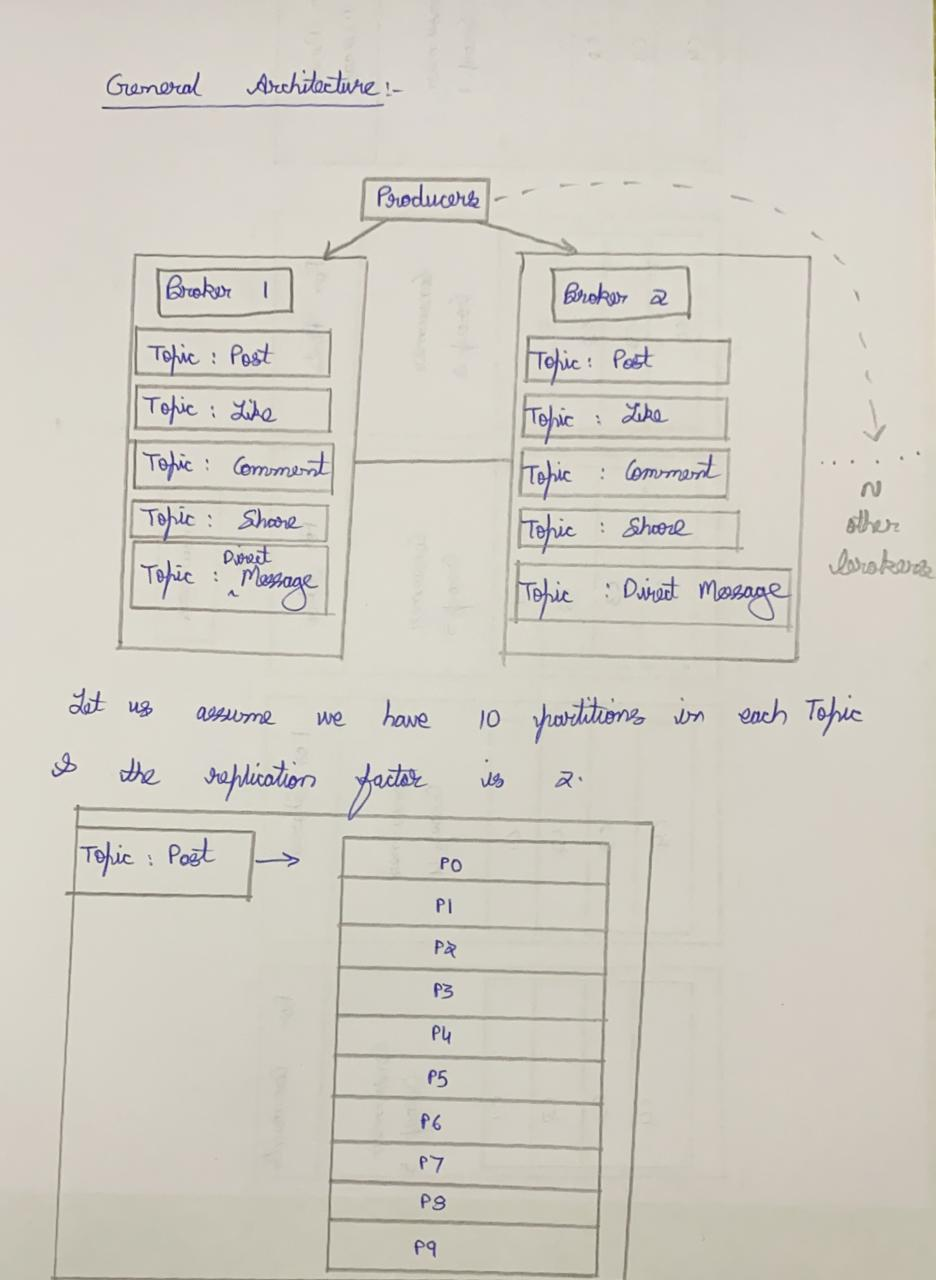 General Architecture:-
Producers
Broker 1
Topic : Post
Topic : Like
Topic : Comment
Topic : Share
Topic : Direct Message
Broker 2
Topic : Post
Topic : Like
Topic : Comment
Topic : Share
Topic : Direct Message
.......
N
other
brokers
Let us assume we have 10 partitions in each Topic
& the replication factor is 2.
Topic : Post
P0
P1
P2
P3
P4
P5
P6
P7
P8
P9